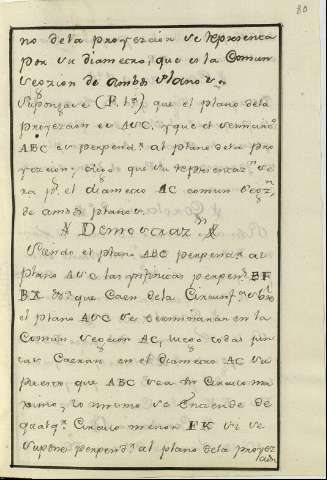 80
no dela proyeccion se representa
por su diametro, que es la Comun
seccion de ambos planos.
Supongase (F. 1ª) que el plano dela
proyeccion es AUC, y que el semicirco.
ABC es perpendr. al plano dela pro
yeccion; digo que su representazn. se
ra pr. el diametro AC comun secczn.
de ambos planos.
Demostrazn.
Siendo el plano ABC perpendr. al
plano AUC las infinitas perpens. BF
BX &ª que Caen dela Circunfa. sobre
el plano AUC se terminaran en la
Comun seccion AC, luego todas jun
tas Caeran en el diametro AC su
puesto que ABC sea un Circulo ma
ximo; lo mismo se entiende de
qualqr. Circulo menor FK si se
supone perpendr. al plano dela proyec
cion